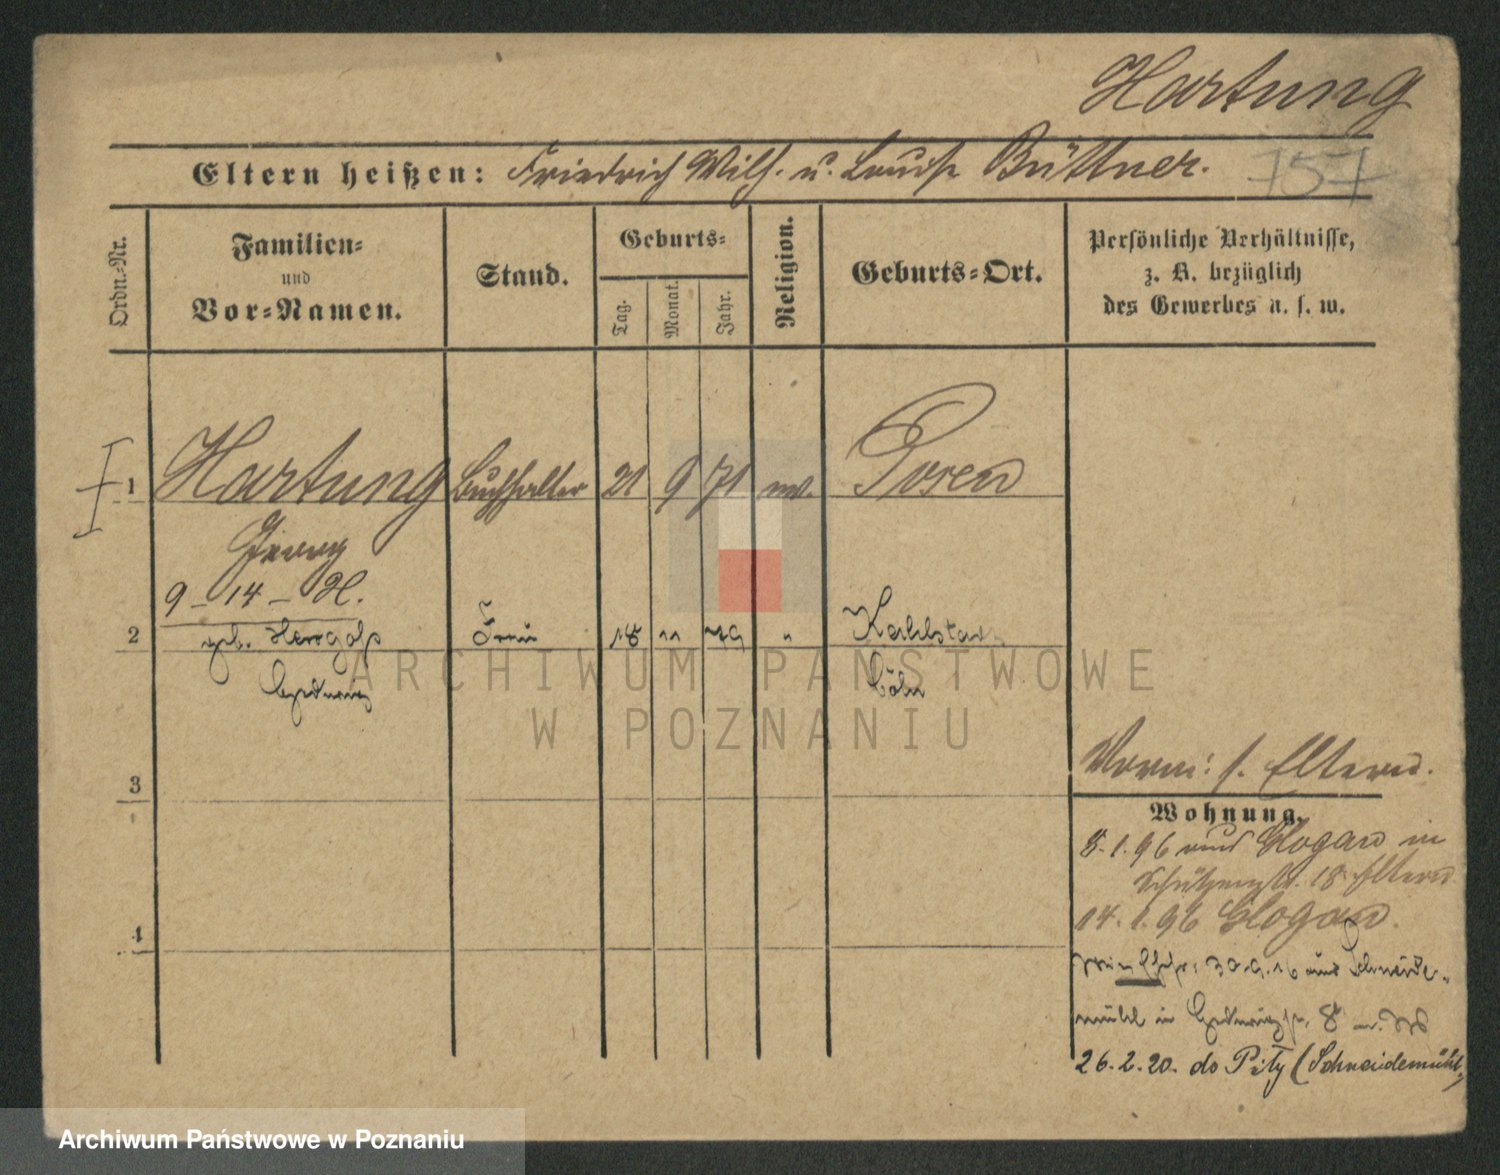 Hartung
Eltern heißen: Friedrich Wilh. u. Louise Büttner.
757
Ordn.-Nr.
Familien-
und
Vor-Namen.
Stand.
Geburts-
Tag.
Monat.
Jahr.
Religion.
Geburts-Ort.
Persönliche Verhältnisse,
z. B. bezüglich
des Gewerbes u. s. w.
1 Hartung Buchhalter 21 9 71 ev. Posen
Georg
9 - 14 - H.
2 geb. Frau 18 11 79 "
Hedwig Cöln
3
Vorm: s. Eltern.
Wohnung.
8.1.96 aus Glogau in
Schützenstr. 18 Eltern
14.1.96 Glogau.
30.9.16 aus Schneide-
mühl in Hedwigstr. 8
26.2.20. do Piły (Schneidemühl)
4
ARCHIWUM PAŃSTWOWE
W POZNANIU
Archiwum Państwowe w Poznaniu